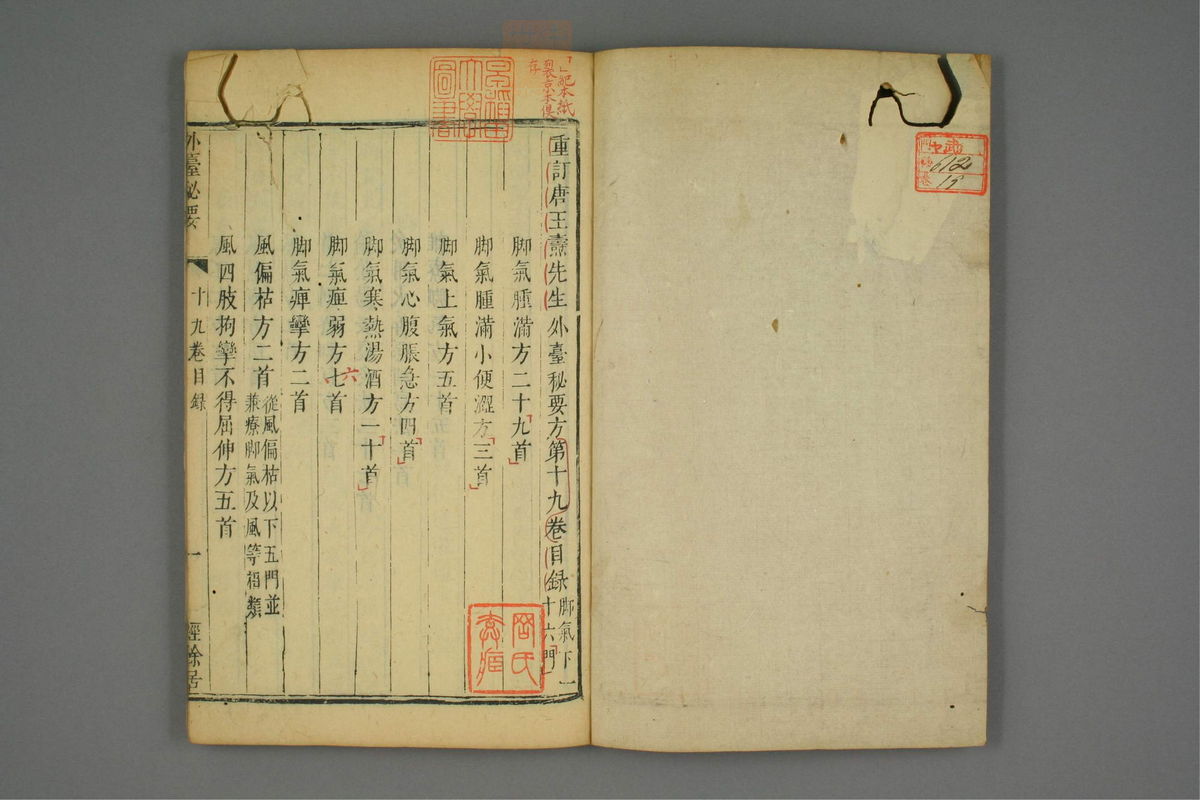 重訂唐王燾先生外臺秘要方第十九卷目錄
脚氣下一
十六門
脚氣腫滿方二十九首
脚氣腫滿小便澀方三首
脚氣上氣方五首
脚氣心腹脹急方四首
脚氣寒熱湯酒方一十首
脚氣痺弱方七首
六
脚氣痺攣方二首
風偏枯方二首
從風偏枯以下五門並
兼療脚氣及風等相類
風四肢拘攣不得屈伸方五首
外臺秘要
十九卷目錄
一
經餘居
612
19